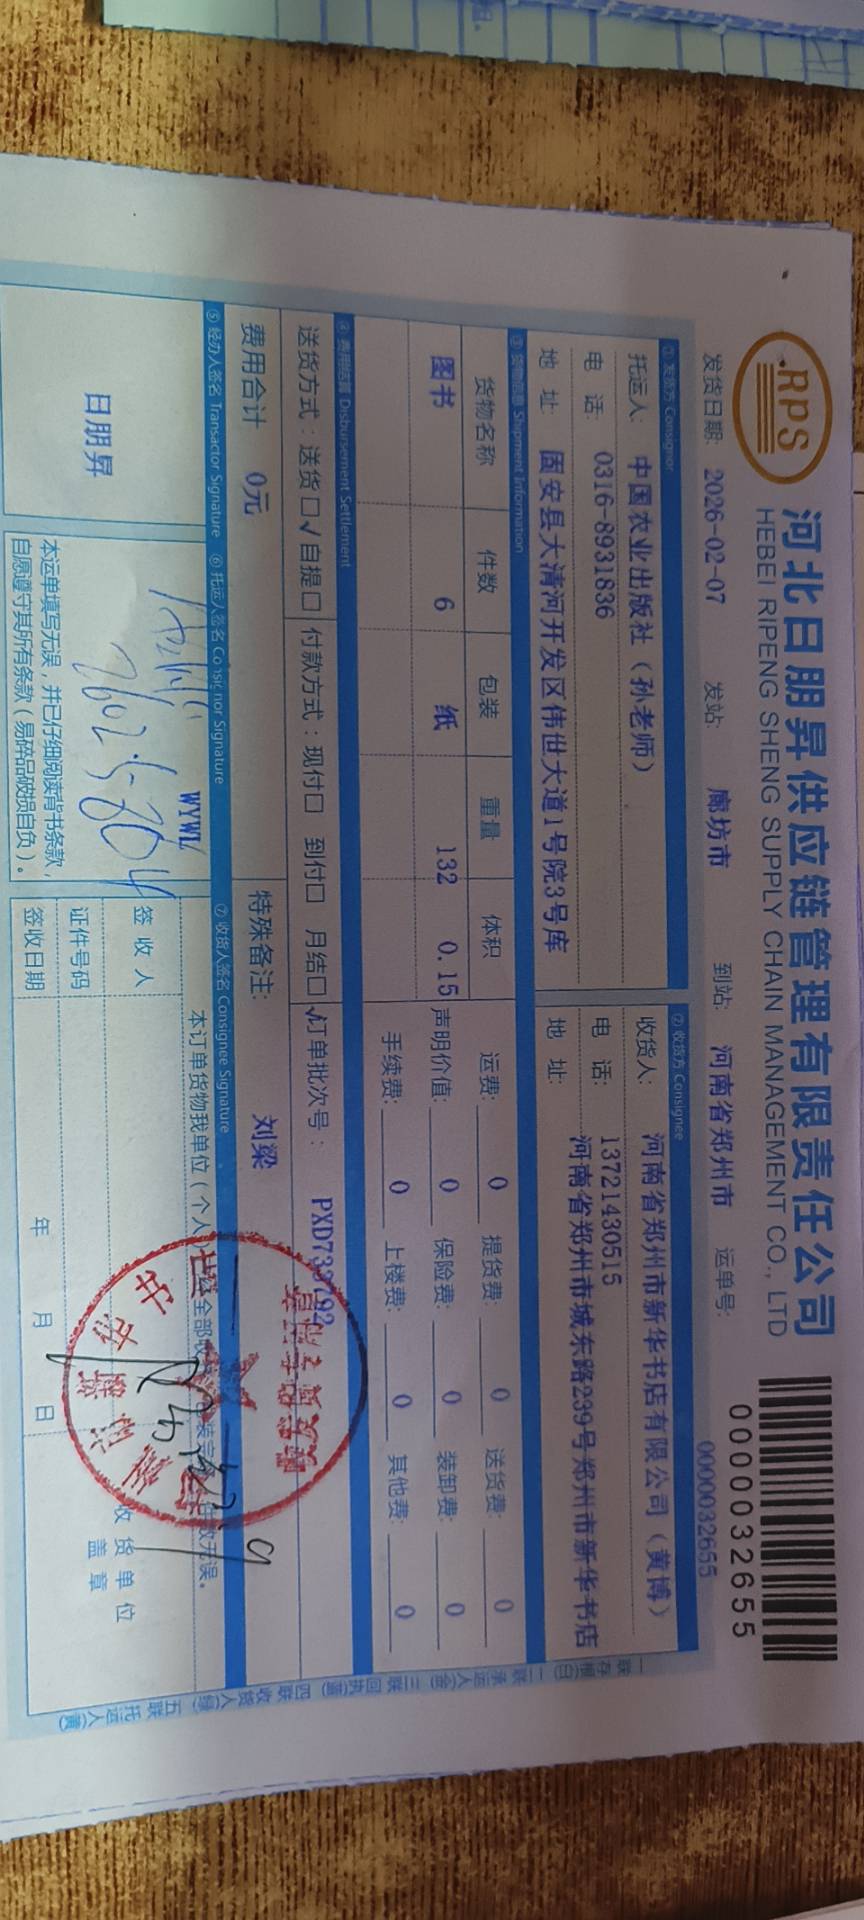 RPS
河北日朋昇供应链管理有限责任公司
HEBEI RIPENG SHENG SUPPLY CHAIN MANAGEMENT CO., LTD
0000032655
发货日期: 2026-02-07 发站: 廊坊市 到站: 河南省郑州市 运单号: 0000032655
① 发货方 Consignor ② 收货方 Consignee
托运人: 中国农业出版社（孙老师） 收货人: 河南省郑州市新华书店有限公司（黄博）
电 话: 0316-8931836 电 话: 13721430515
地 址: 固安县大清河开发区伟世大道1号院3号库 地 址: 河南省郑州市城东路239号郑州市新华书店
③ 货物信息 Shipment Information
货物名称 件数 包装 重量 体积 运费: 0 提货费: 0 送货费: 0
图书 6 纸 132 0.15 声明价值: 0 保险费: 0 装卸费: 0
手续费: 0 上楼费: 0 其他费: 0
④ 费用结算 Disbursement Settlement
送货方式：送货□√ 自提□ 付款方式：现付□ 到付□ 月结□√ 订单批次号： PXD739792
费用合计 0元 特殊备注: 刘梁
⑤ 经办人签名 Transactor Signature ⑥ 托运人签名 Consignor Signature ⑦ 收货人签名 Consignee Signature
日朋昇
WYWL
本运单填写无误，并已仔细阅读背书条款，
自愿遵守其所有条款（易碎品破损自负）。
本订单货物我单位（个人）
全部
件数无误。
签 收 人
证件号码
签收日期 年 月 日
收货单位
盖 章
一联存根(白) 二联承运人(金) 三联回执(蓝) 四联收货人(绿) 五联托运人(黄)